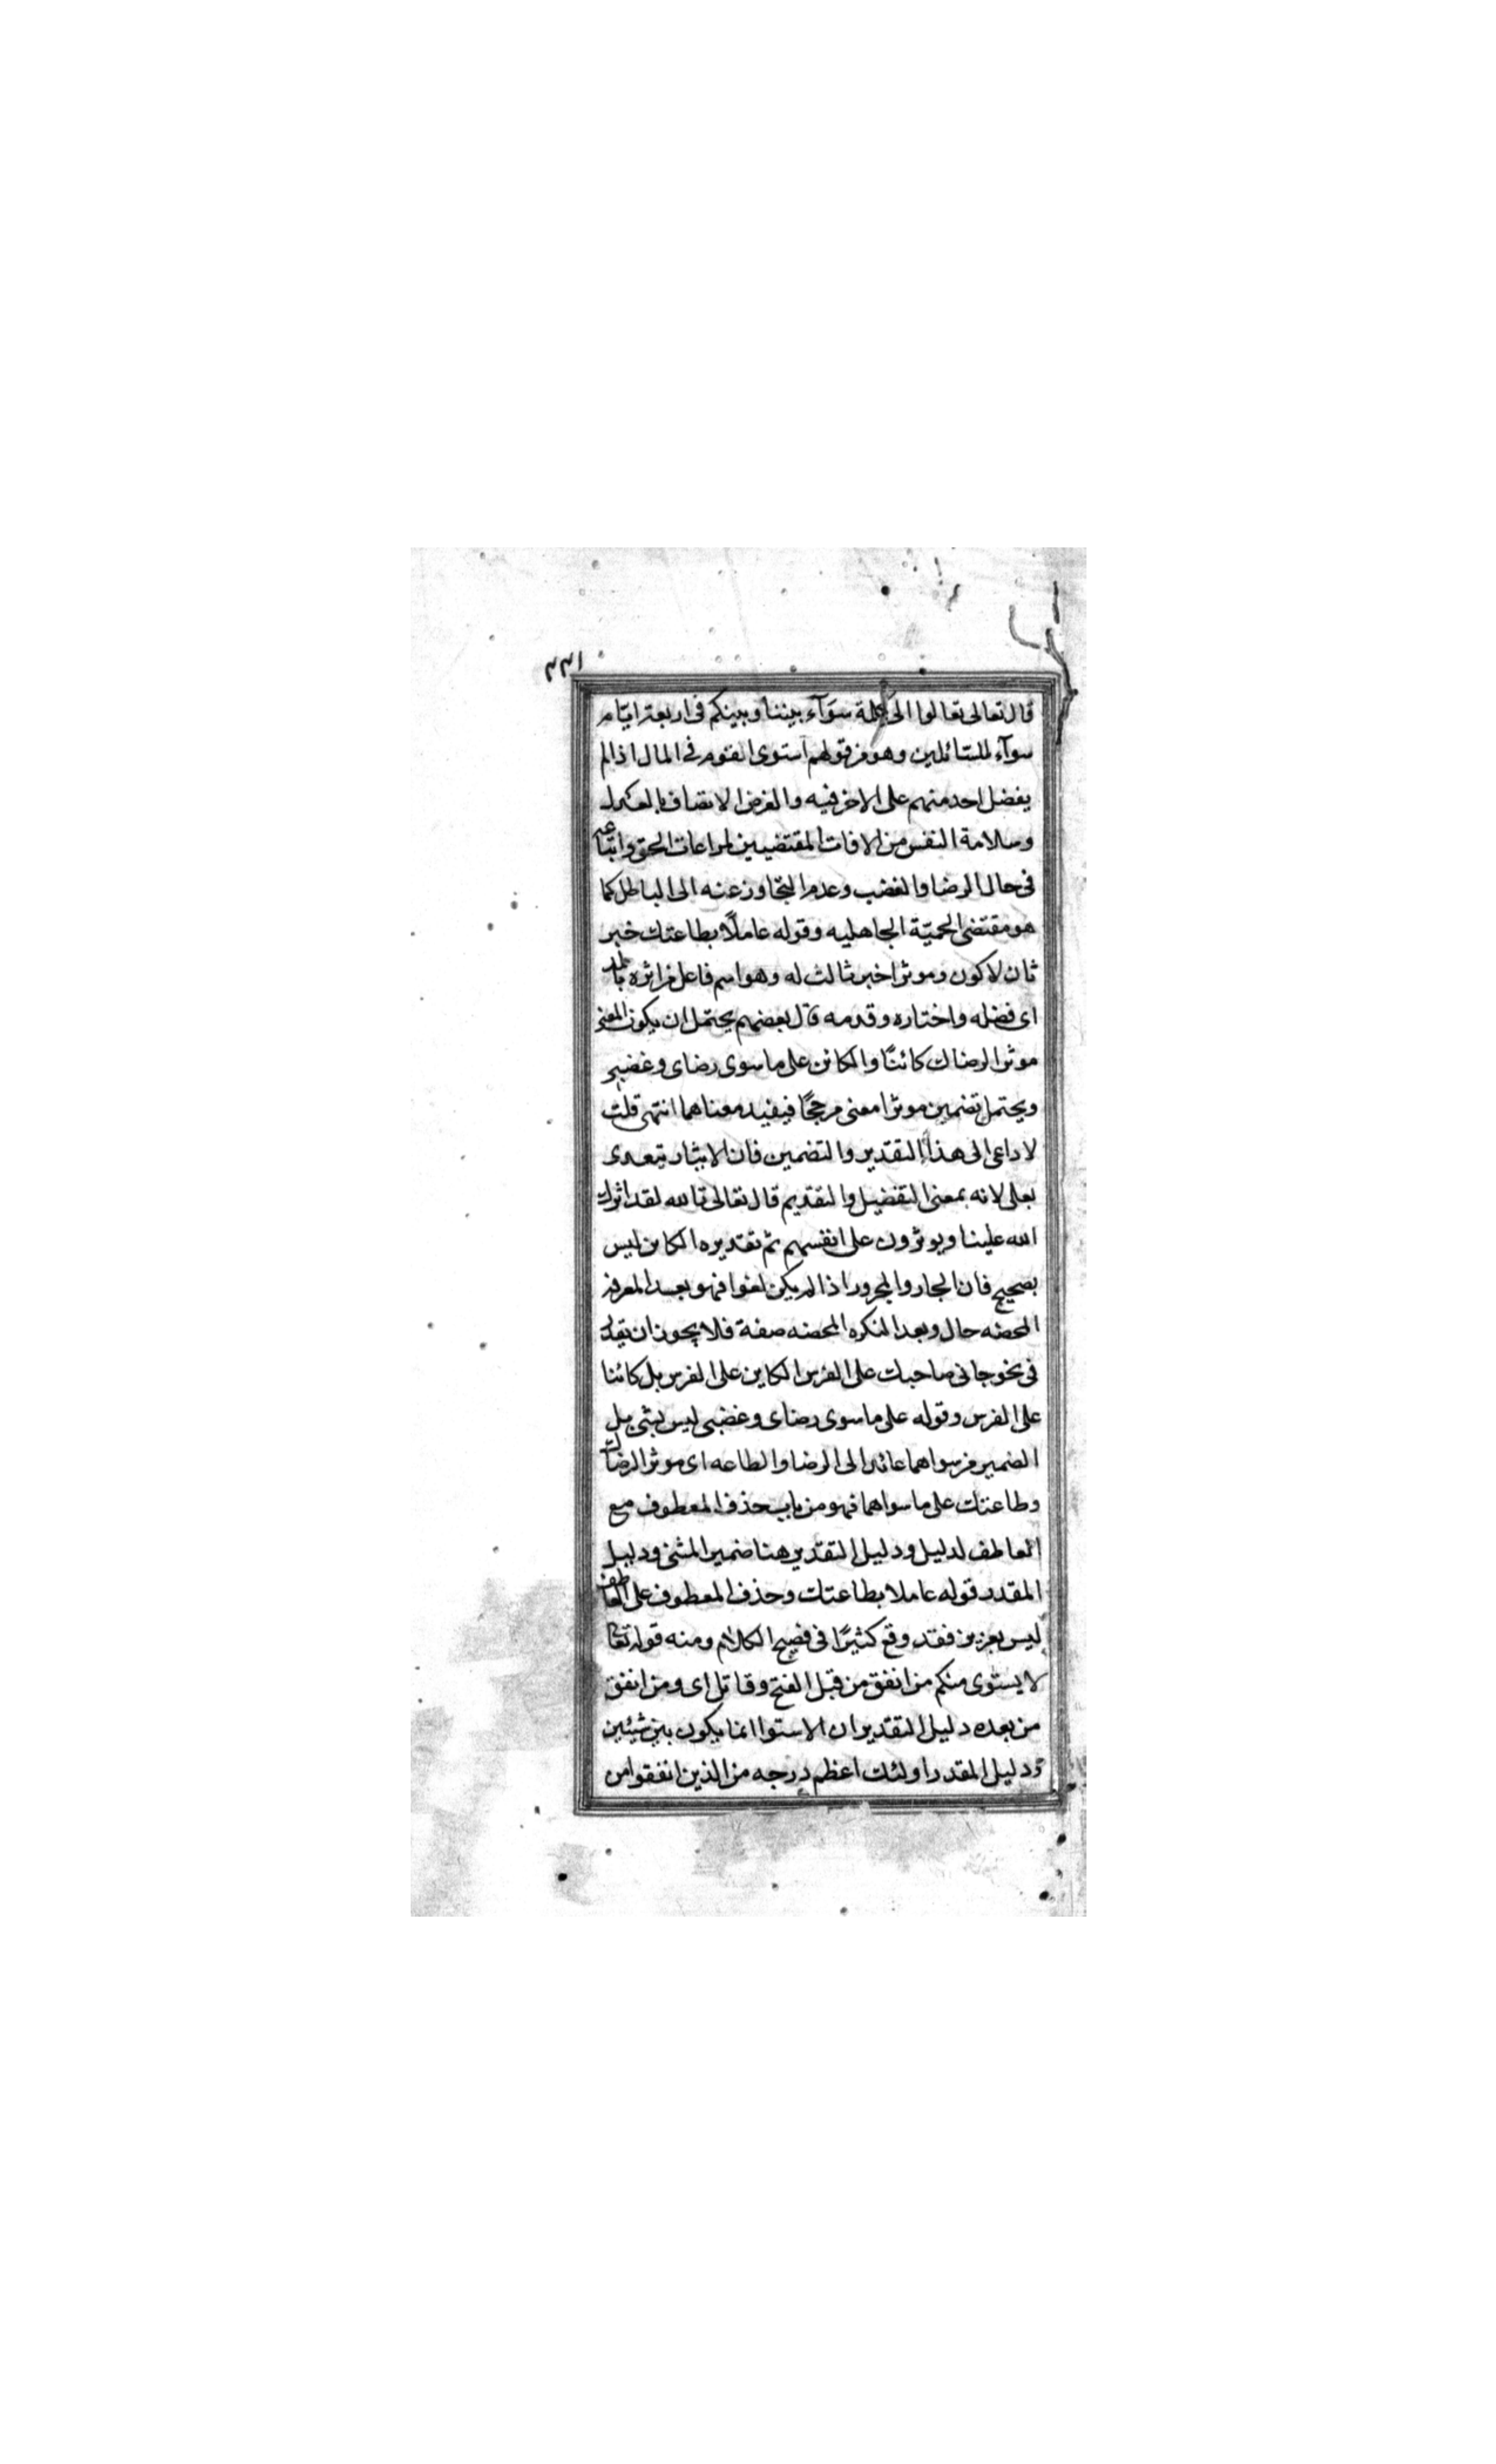 ٢٢١
قال تعالى تعالوا الى كلمة سوآء بيننا وبينكم فى اربعة ايّام
سوآء للسّائلين وهو من قولهم استوى القوم فى المال اذا لم
يفضل احد منهم على الاخر فيه والغرض الاتصاف بالعدل
وسلامة النفس من الافات المقتضيين لمراعات الحق واتباعه
فى حال الرضا والغضب وعدم التجاوز عنه الى الباطل كما
هو مقتضى الحميّة الجاهليه وقوله عاملًا بطاعتك خبر
ثان لاكون وموثرا خبر ثالث له وهو اسم فاعل من اثره بالمد
اى فضله واختاره وقدمه قال بعضهم يحتمل ان يكون المعنى
موثرا لرضاك كائنًا والكائن على ما سوى رضاى وغضبى
ويحتمل تضمين موثرا معنى مرجحًا فيفيد معناهما انتهى قلت
لا داعى الى هذا التقدير والتضمين فان الايثار يتعدى
بعلى لانه بمعنى التفضيل والتقديم قال تعالى تالله لقد اثرك
الله علينا ويوثرون على انفسهم ثم تقديره الكاين ليس
بصحيح فان الجار والمجرور اذا لم يكن لغوا فهو بعد المعرفة
المحضه حال وبعد النكره المحضه صفة فلا يجوز ان يقدر
فى نحو جانى صاحبك على الفرس الكاين على الفرس بل كائنا
على الفرس وقوله على ما سوى رضاى وغضبى ليس بشى بل
الضمير من سواهما عائد الى الرضا والطاعه اى موثرا لرضاك
وطاعتك على ما سواهما فهو من باب حذف المعطوف مع
العاطف لدليل ودليل التقدير هنا ضمير المثنى ودليل
المقدر قوله عاملا بطاعتك وحذف المعطوف على العاطف
ليس بعزيز فقد وقع كثيرًا فى فصيح الكلام ومنه قوله تعالى
لا يستوى منكم من انفق من قبل الفتح وقاتل اى ومن انفق
من بعده دليل التقدير ان الاستوا انما يكون بين شيئين
ودليل المقدر اولئك اعظم درجه من الذين انفقوا من